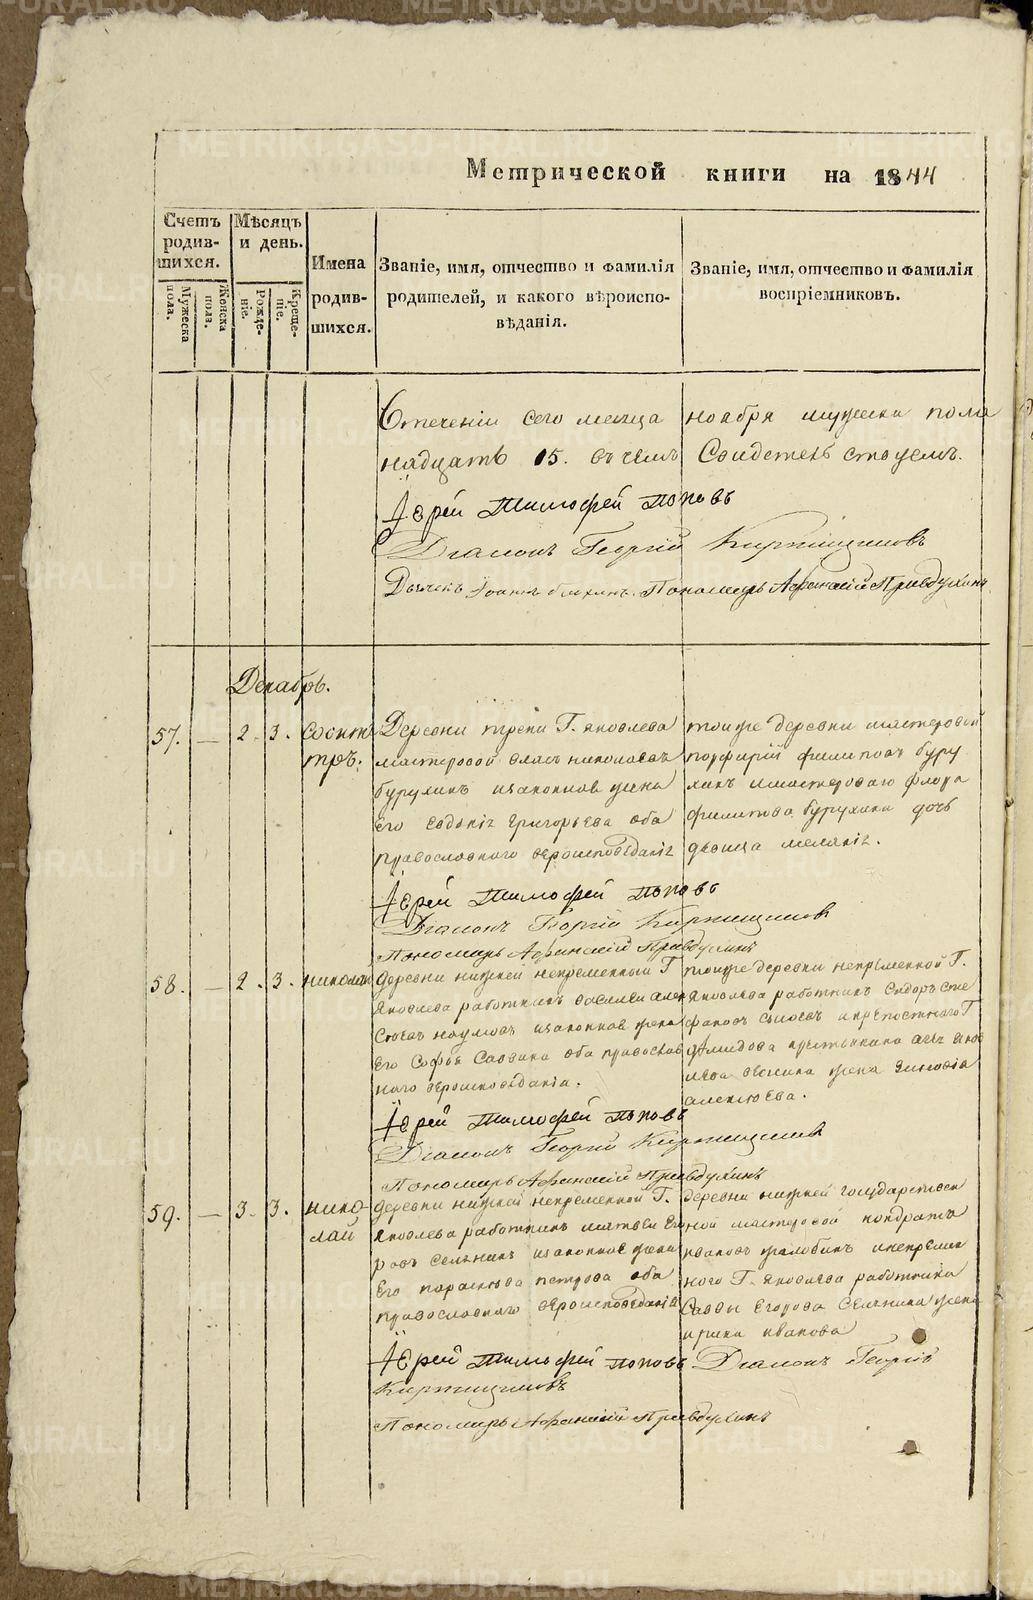 METRIKI.GASU-URAL.RU
Метрической книги на 1844
Счетъ родив-шихся.
Мужеска пола.
Женска пола.
Мѣсяцъ и день.
Рожде-ніе.
Креще-ніе.
Имена родив-шихся.
Званіе, имя, отчество и фамилія
родителей, и какого вѣроиспо-
вѣданія.
Званіе, имя, отчество и фамилія
воспріемниковъ.
Втеченіи сего месяца ноября мужеска пола
надцать 15. въ чемъ Свидетельствуемъ.
Іерей Тимофей поповъ
Діаконъ Георгій
Пономарь Афанасій
Декабрь.
57. — 2. 3.
Деревни Г. яковлева
мастеровой власъ николаевъ
бурухинъ изаконная жена
его евдокія григорьева оба
православного вероисповеданія
тоиже деревни мастеровой
порфирій филиповъ буру
хинъ имастероваго флора
филипова бурухина дочь
девица меланія.
Іерей Тимофей поповъ
Діаконъ Георгій
Пономарь Афанасій
58. — 2. 3. николай
деревни нижней непременный Г
яковлева работникъ савелій алек
сеевъ наумовъ изаконная жена
его Софья Саввина оба православ
ного вероисповеданія.
тоиже деревни непременной Г.
яковлева работникъ Сидоръ сте
фановъ икрепостнаго Г
демидова крестьянина
жена зиновія
алексеева.
Іерей Тимофей поповъ
Діаконъ Георгій
Пономарь Афанасій
59. — 3. 3. нико
лай
деревни нижней непременной Г.
яковлева работникъ матвеи его
ровъ изаконная жена
его параскева петрова оба
православнаго вероисповеданія
деревни нижней государствен
ной мастеровой кондратъ
ивановъ инепремен
ного Г. яковлева работника
Саввы Егорова жена
ирина иванова
Іерей Тимофей поповъ Діаконъ Георгій
Пономарь Афанасій